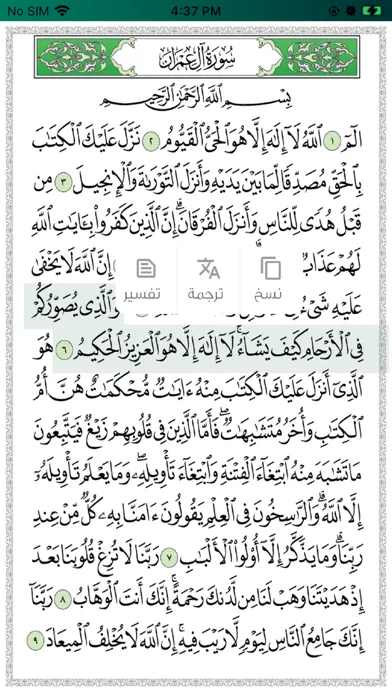 No SIM 4:37 PM
سُورَةُ آلِ عِمۡرَان
بِسۡمِ ٱللَّهِ ٱلرَّحۡمَٰنِ ٱلرَّحِيمِ
الٓمٓ ١ ٱللَّهُ لَآ إِلَٰهَ إِلَّا هُوَ ٱلۡحَيُّ ٱلۡقَيُّومُ ٢ نَزَّلَ عَلَيۡكَ ٱلۡكِتَٰبَ
بِٱلۡحَقِّ مُصَدِّقٗا لِّمَا بَيۡنَ يَدَيۡهِ وَأَنزَلَ ٱلتَّوۡرَىٰةَ وَٱلۡإِنجِيلَ ٣ مِن
قَبۡلُ هُدٗى لِّلنَّاسِ وَأَنزَلَ ٱلۡفُرۡقَانَۗ إِنَّ ٱلَّذِينَ كَفَرُواْ بِـَٔايَٰتِ ٱللَّهِ
لَهُمۡ عَذَابٞ إِنَّ ٱللَّهَ لَا يَخۡفَىٰ
نسخ ترجمة تفسير
عَلَيۡهِ شَيۡءٞ ٱلَّذِي يُصَوِّرُكُمۡ
فِي ٱلۡأَرۡحَامِ كَيۡفَ يَشَآءُۚ لَآ إِلَٰهَ إِلَّا هُوَ ٱلۡعَزِيزُ ٱلۡحَكِيمُ ٦ هُوَ
ٱلَّذِيٓ أَنزَلَ عَلَيۡكَ ٱلۡكِتَٰبَ مِنۡهُ ءَايَٰتٞ مُّحۡكَمَٰتٌ هُنَّ أُمُّ
ٱلۡكِتَٰبِ وَأُخَرُ مُتَشَٰبِهَٰتٞۖ فَأَمَّا ٱلَّذِينَ فِي قُلُوبِهِمۡ زَيۡغٞ فَيَتَّبِعُونَ
مَا تَشَٰبَهَ مِنۡهُ ٱبۡتِغَآءَ ٱلۡفِتۡنَةِ وَٱبۡتِغَآءَ تَأۡوِيلِهِۦۖ وَمَا يَعۡلَمُ تَأۡوِيلَهُۥٓ
إِلَّا ٱللَّهُۗ وَٱلرَّٰسِخُونَ فِي ٱلۡعِلۡمِ يَقُولُونَ ءَامَنَّا بِهِۦ كُلّٞ مِّنۡ عِندِ
رَبِّنَاۗ وَمَا يَذَّكَّرُ إِلَّآ أُوْلُواْ ٱلۡأَلۡبَٰبِ ٧ رَبَّنَا لَا تُزِغۡ قُلُوبَنَا بَعۡدَ
إِذۡ هَدَيۡتَنَا وَهَبۡ لَنَا مِن لَّدُنكَ رَحۡمَةًۚ إِنَّكَ أَنتَ ٱلۡوَهَّابُ ٨ رَبَّنَآ
إِنَّكَ جَامِعُ ٱلنَّاسِ لِيَوۡمٖ لَّا رَيۡبَ فِيهِۚ إِنَّ ٱللَّهَ لَا يُخۡلِفُ ٱلۡمِيعَادَ ٩